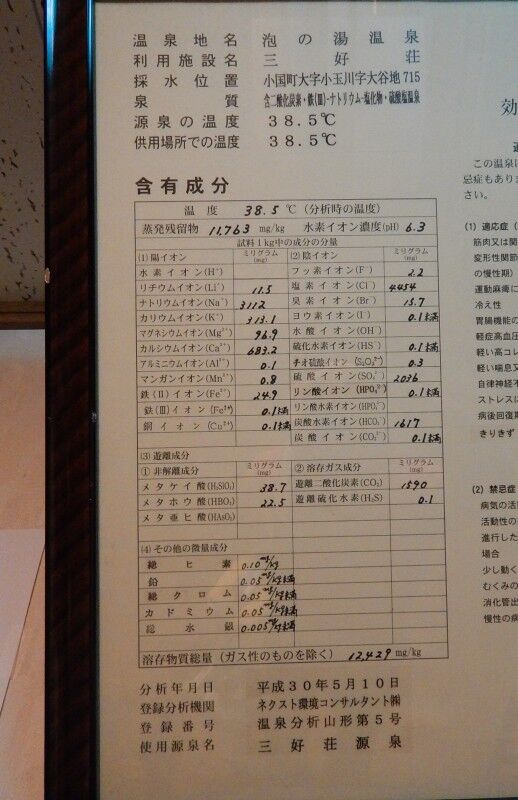 温泉地名 泡の湯温泉
利用施設名 三好荘
採水位置 小国町大字小玉川字大谷地715
泉質 含二酸化炭素・鉄(Ⅲ)-ナトリウム-塩化物・硫酸塩温泉
源泉の温度 38.5℃
供用場所での温度 38.5℃
含有成分
温度 38.5 ℃ (分析時の温度)
蒸発残留物 11,763 mg/kg 水素イオン濃度(pH) 6.3
試料1kg中の成分の分量
(1)陽イオン ミリグラム(mg) (2)陰イオン ミリグラム(mg)
水素イオン(H⁺) フッ素イオン(F⁻) 2.2
リチウムイオン(Li⁺) 11.5 塩素イオン(Cl⁻) 4454
ナトリウムイオン(Na⁺) 3112 臭素イオン(Br⁻) 15.7
カリウムイオン(K⁺) 313.1 ヨウ素イオン(I⁻) 0.1未満
マグネシウムイオン(Mg²⁺) 96.9 水酸イオン(OH⁻)
カルシウムイオン(Ca²⁺) 683.2 硫化水素イオン(HS⁻) 0.1未満
アルミニウムイオン(Al³⁺) 0.1 チオ硫酸イオン(S₂O₃²⁻) 0.3
マンガンイオン(Mn²⁺) 0.8 硫酸イオン(SO₄²⁻) 2036
鉄(Ⅱ)イオン(Fe²⁺) 24.9 リン酸イオン(HPO₄²⁻) 0.1未満
鉄(Ⅲ)イオン(Fe³⁺) 0.1未満 リン酸水素イオン(HPO₄²⁻)
銅イオン(Cu²⁺) 0.1未満 炭酸水素イオン(HCO₃⁻) 1617
炭酸イオン(CO₃²⁻) 0.1未満
(3)遊離成分
①非解離成分 ミリグラム(mg) ②溶存ガス成分 ミリグラム(mg)
メタケイ酸(H₂SiO₃) 38.7 遊離二酸化炭素(CO₂) 1590
メタホウ酸(HBO₂) 22.5 遊離硫化水素(H₂S) 0.1
メタ亜ヒ酸(HAsO₂)
(4)その他の微量成分
総ヒ素 0.10mg/kg
鉛 0.05mg/kg未満
総クロム 0.05mg/kg未満
カドミウム 0.05mg/kg未満
総水銀 0.005mg/kg未満
溶存物質総量(ガス性のものを除く) 12,429 mg/kg
分析年月日 平成30年5月10日
登録分析機関 ネクスト環境コンサルタント㈱
登録番号 温泉分析山形第5号
使用源泉名 三好荘源泉
効
この温泉は
忌症もありま
さい。
(1) 適応症(
筋肉又は関
変形性関節
の慢性期)
運動麻痺に
冷え性
胃腸機能の
軽症高血圧
軽い高コレ
軽い喘息又
自律神経不
ストレスに
病後回復期
きりきず
(2) 禁忌症
病気の活
活動性の
進行した
場合
少し動く
むくみの
消化管出
慢性の病